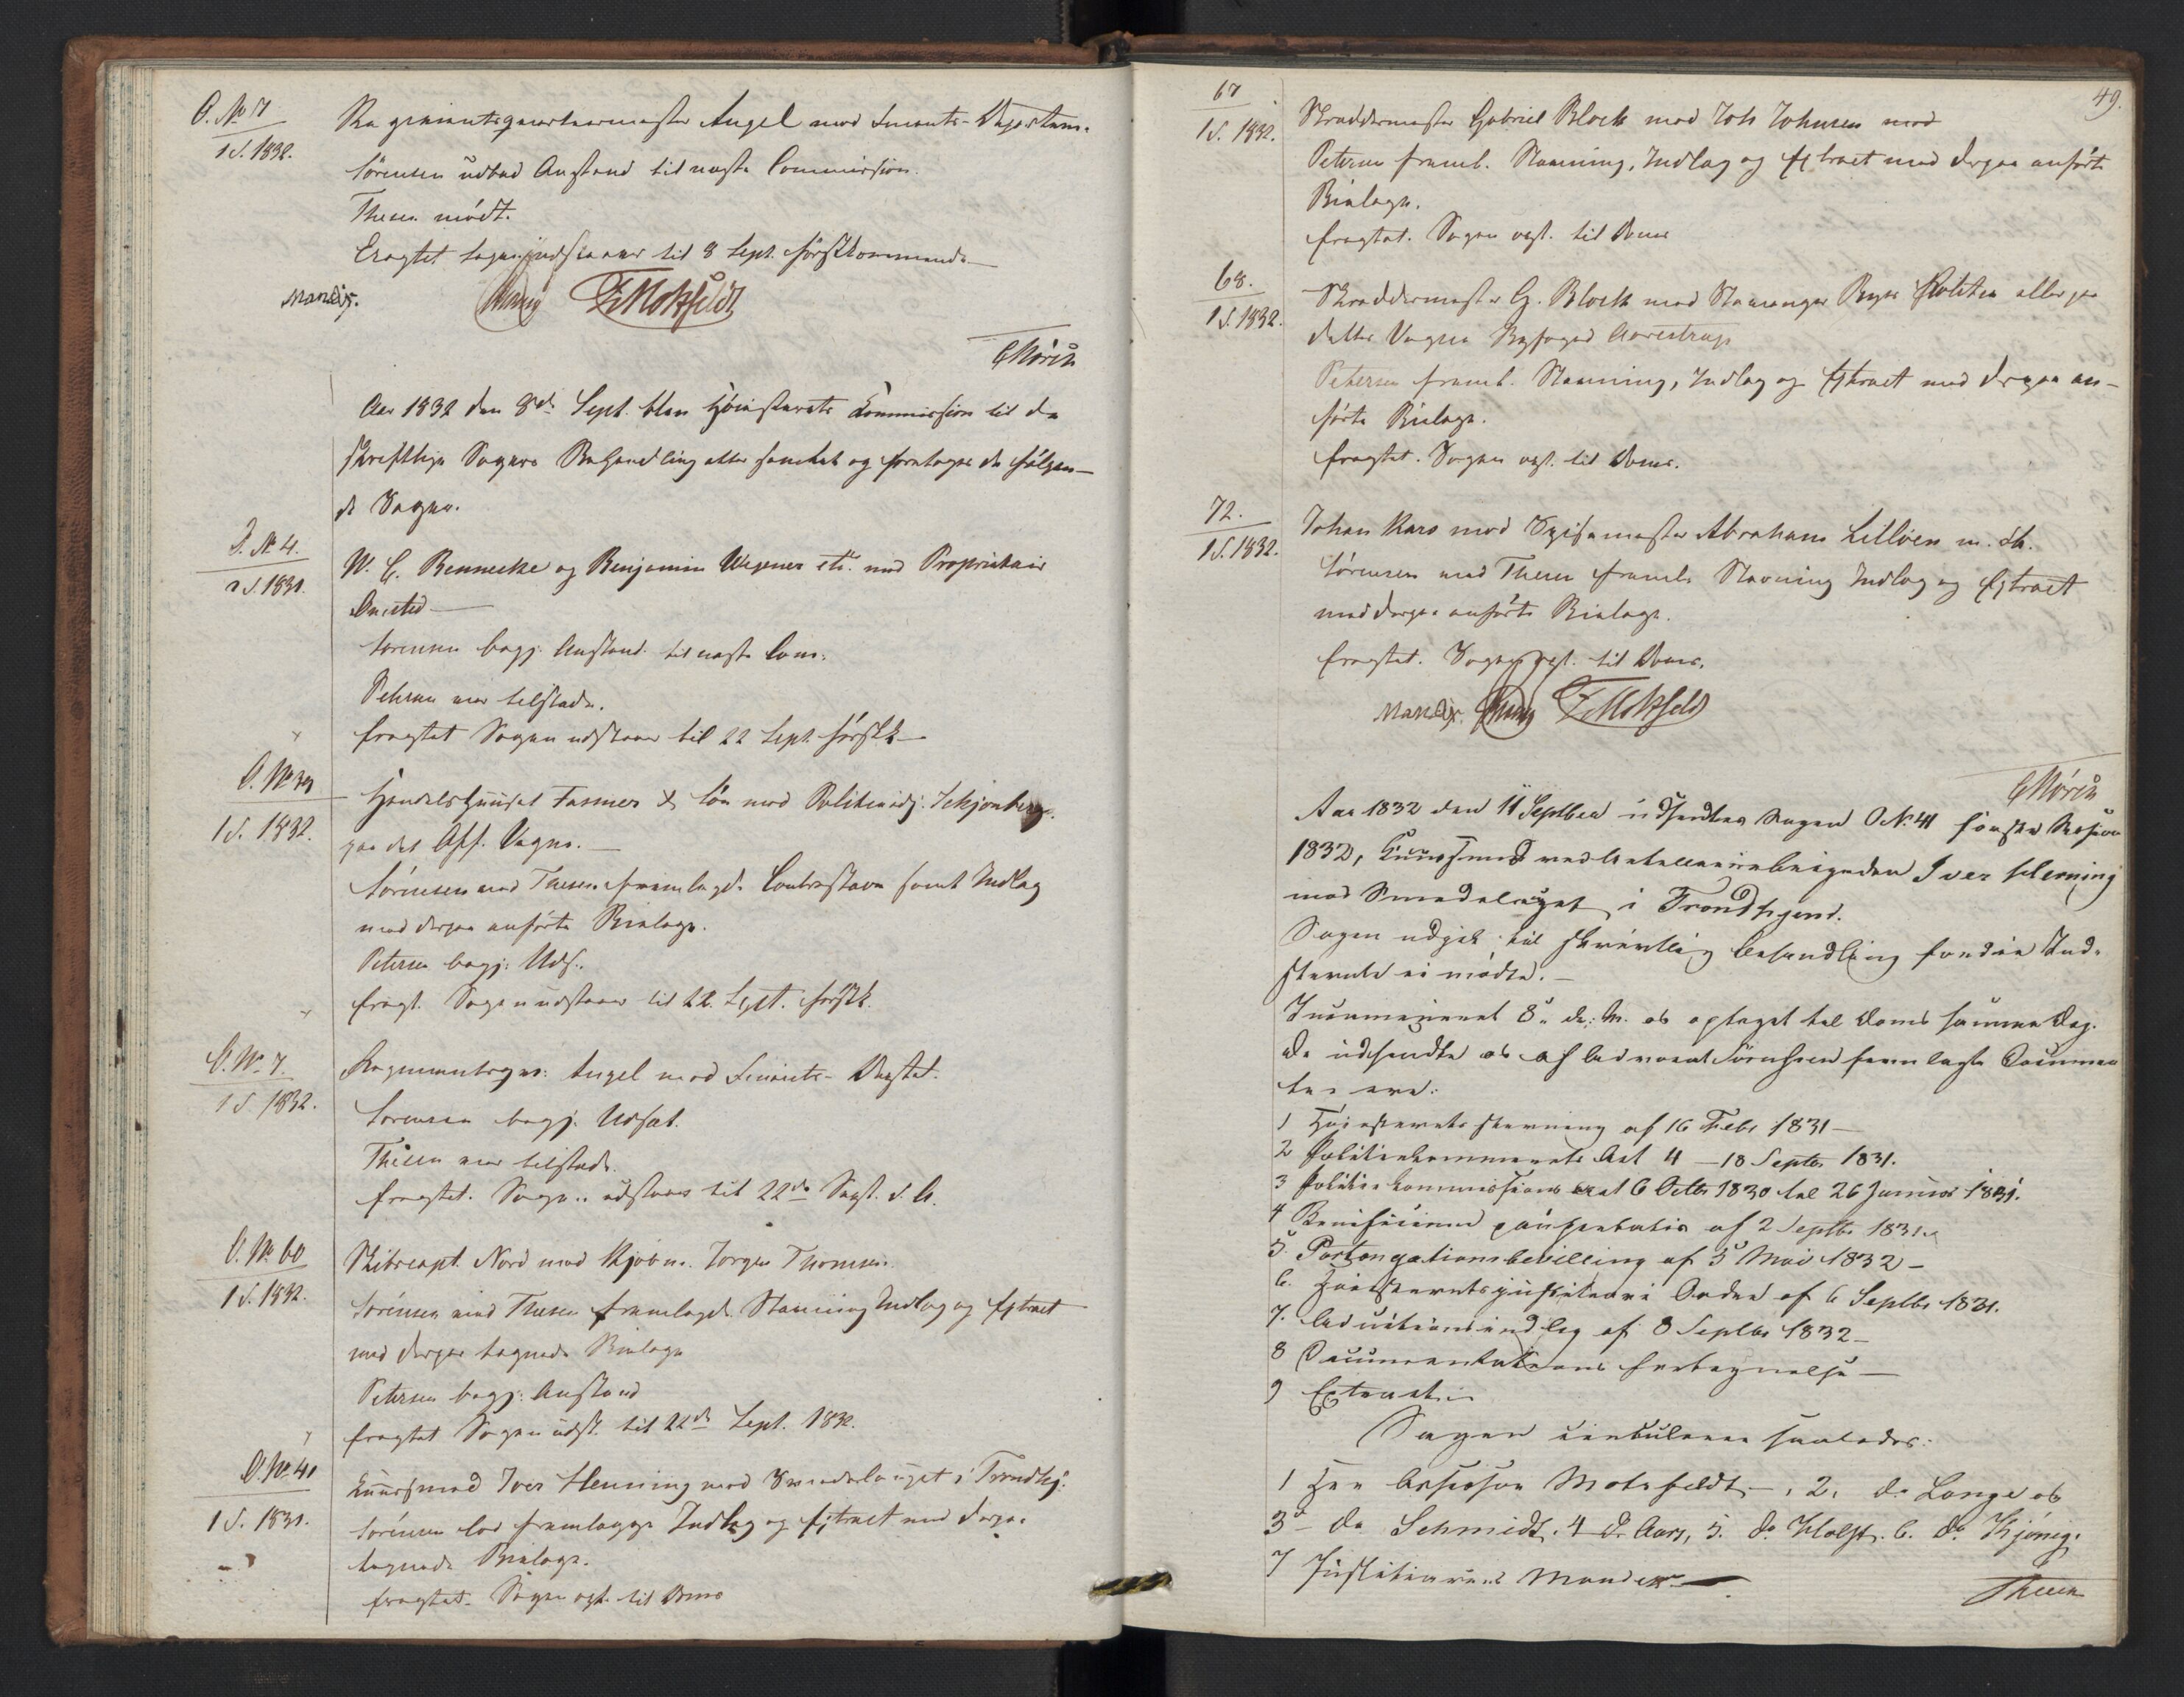 O. No 7
1 S. 1832.
Regimentsqvarteermester Angel mod Finants-Departem.
Sørensen udbad Anstand til næste Commission.
Thesen mødt.
Eragtet Sagen udstaaer til 8 Sept. førstkommende
Mandix. F Motzfeldt
C Mørch
Aar 1832 den 8de Sept. blev Høiesterets Commission til de
skriftlige Sagers Behandling atter samlet og foretoges de følgen-
de Sager.
O. No 4.
2 S. 1831.
W. C. Bennecke og Benjamin Wegner etc. mod Proprietair
Onsted
Sørensen begj. Anstand til næste Com:
Petersen var tilstede.
Eragtet Sagen udstaaer til 22 Sept. førstk
O. No 39
1 S. 1832.
Handelshuuset Fasmer & Søn mod Politieadj. Schjonberg
paa det Off. Vegne.
Sørensen med Thesen fremlagde Contrastævn samt Indlæg
med derpaa anførte Bielage.
Petersen begj: Uds.
Eragt. Sagen udstaaer til 22. Sept. førstk.
O. No 7.
1 S. 1832.
Regimentsqv: Angel mod Finants-Deptet.
Sørensen begj. Udsæt.
Thesen var tilstede.
Eragtet. Sagen udstaaer til 22de Sept. d. A.
O. No 60
1 S. 1832.
Skibscapt. Nord mod Kjøbm. Jørgen Thomsen.
Sørensen med Thesen fremlagde Stævning Indlæg og Extract
med derpaa tegnede Bielage
Petersen begj: Anstand
Eragtet Sagen udst. til 22de Sept. 1832.
O. No 41
1 S. 1831.
Kuursmed Iver Henning mod Smedelauget i Trondhj:
Sørensen lod fremlægge Indlæg og Extract med derpaa
tegnede Bielage.
Eragtet. Sagen opt. til Doms
49.
67
1 S. 1832.
Skræddermester Gabriel Block mod Joh Johnsen mod
Petersen freml. Stævning, Indlæg og Extract med derpaa anførte
Bielage.
Eragtet. Sagen opt. til Doms
68.
1 S. 1832.
Skræddermester G. Block mod Stavanger Byes Politie eller paa
dettes Vegne Byfoged Aarestrup
Petersen freml. Stævning, Indlæg og Extract med derpaa an-
førte Bielage.
Eragtet. Sagen opt. til Doms.
72.
1 S. 1832.
Johan Kars mod Spisemester Abraham Lilloen m. Fl.
Sørensen med Thesen freml. Stævning Indlæg og Extract
med derpaa anførte Bielage.
Eragtet. Sagen opt. til Doms.
Mandix. F Motzfeldt
C Mørch
Aar 1832 den 11 Septber udsendtes Sagen O No. 41 første Session
1832, Kuursmed Iver Henning
mod Smedelauget i Trondhjem.
Sagen udgik til skriftlig Behandling fordi Ind-
stevnte ei mødte.
8. d. M. og optaget til Doms samme Dag.
De udsendte og af Advocat Sørensen fremlagte Documen
ter ere:
1 Høiesterets Stævning af 16 Febr 1831
2 Politiekammerets Act 4 - 18 Septbr 1831.
3 Politiekommissions Act 6 Octbr 1830 til 26 Januar 1831.
4 Beneficium paupertatis af 2 Septbr 1831.
5. Portongationsbevilling af 5 Mai 1832
6. Høiesteretsjustitiarii Ordre af 6 Septbr 1831.
7. Indlæg af 8 Septbr 1832
8 Documentations Fortegnelse
9 Extract
Sagen circulerer saaledes:
1 Herr Assessor Motzfeldt, 2. do Lange og
3 do Schmidt. 4 do Aars, 5. do Holst. 6. do Kjønig.
7 Justitiarius Mandix
Thesen